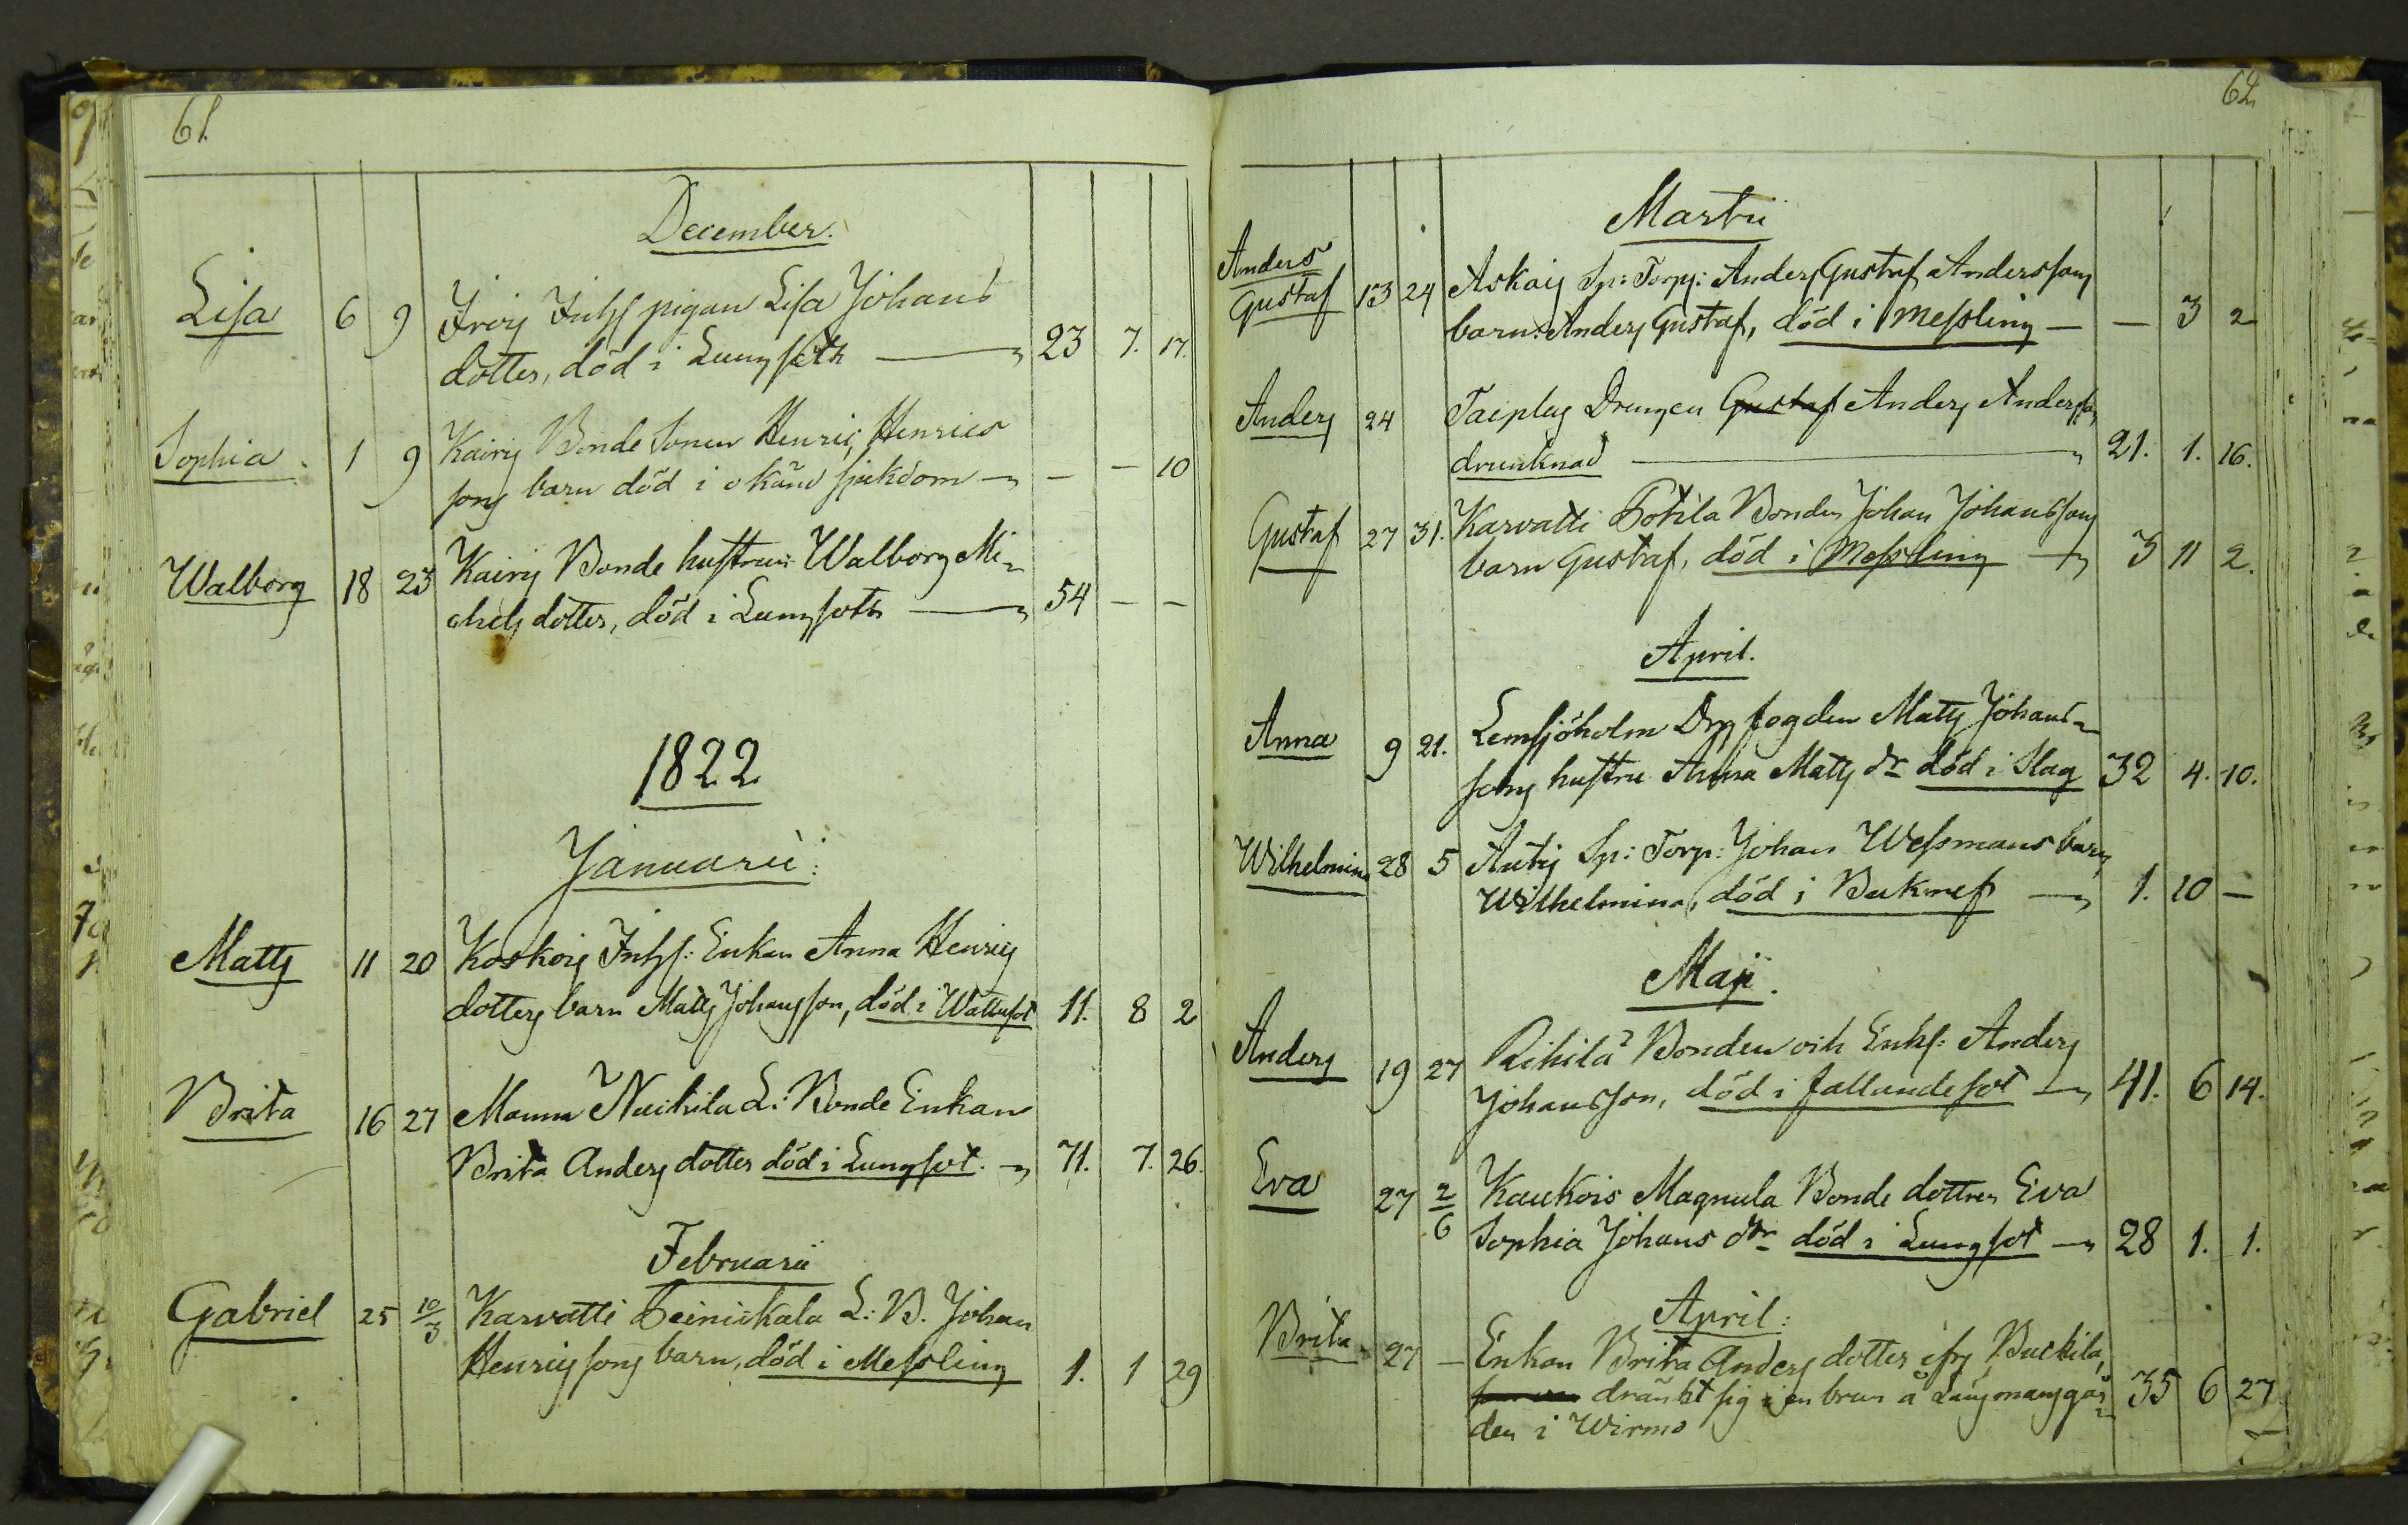 61.
December.
Lisa 6 9 Irois Inhs pigan Lisa Johans
dotter, död i Lungsoth 23 7. 17.
Sophia 1 9 Kairis Bonde Sonen Henric Henrics
sons barn död i okänd sjukdom — — 10
Walborg 18 23 Kairis Bonde hustrun Walborg Mi-
chels dotter, död i Lungsoth 54 — —
1822
Januarii:
Matts 11 20 Koskois Inhs: Enkan Anna Henrics
dotters barn Matts Johansson, död i Wattusot 11. 8 2
Brita 16 27 Mannu Nuikila L: Bonde Enkan
Brita Anders dotter död i Lungsot. 71. 7. 26.
Februarii
Gabriel 25 10/3 Karvatti Heinikala L: B. Johan
Henrics sons barn, död i Messling 1. 1 29
62
Martii
Anders
Gustaf 13 24 Askais Sp: Torps: Anders Gustaf Anderssons
barn: Anders Gustaf, död i Messling — — 3 2
Anders 24 Taiplas Drengen Gustaf Anders Andersson
drunknad 21. 1. 16.
Gustaf 27 31. Karvatti Totila Bonden Johan Johanssons
barn Gustaf, död i Messling 3 11 2.
April.
Anna 9 21. Lemsjöholm Drg fogden Matts Johans-
sons hustru Anna Matts dr död i Slag 32 4. 10.
Wilhelmina 28 5 Autis Sp: Torp: Johan Wessmans barn
Wilhelmina, död i Bukref 1. 10 —
Maji.
Anders 19 27 Rihilä Bonden och Enkl: Anders
Johansson, död i fallandesot 41. 6 14.
Eva 27 2/6 Kaukois Magnula Bonde dottren Eva
Sophia Johans dtr död i Lungsot 28 1. 1.
April:
Brita 27 — Enkan Brita Anders dotter ifrs Buckila,
dränkt sig i en brun å Laugmansgår-
den i Wirmo 35 6 27